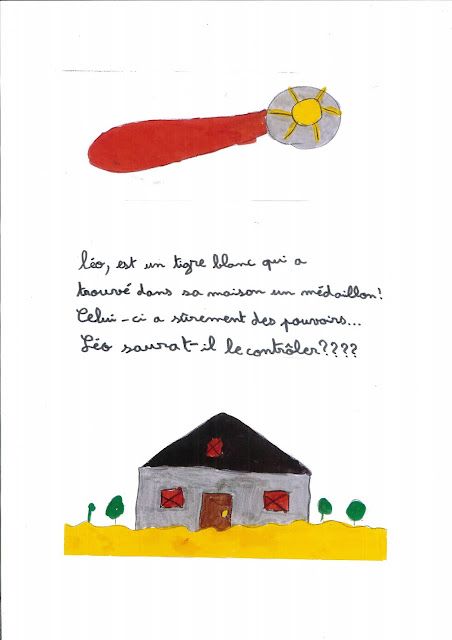 léo, est un tigre blanc qui a
trouvé dans sa maison un médaillon!
Celui-ci a sûrement des pouvoirs...
Léo saurat-il le contrôler????